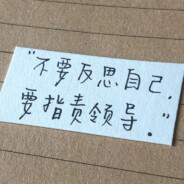 "不要反思自己,
要指责领导。"